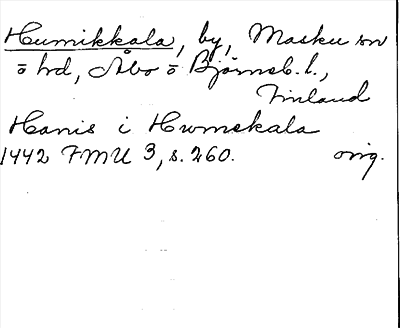 Humikkala, by, Masku sn
o hd, Åbo o Björneb. l.,
Finland
Hanis i Hwmekala
1442 FMU 3, s. 260. orig.